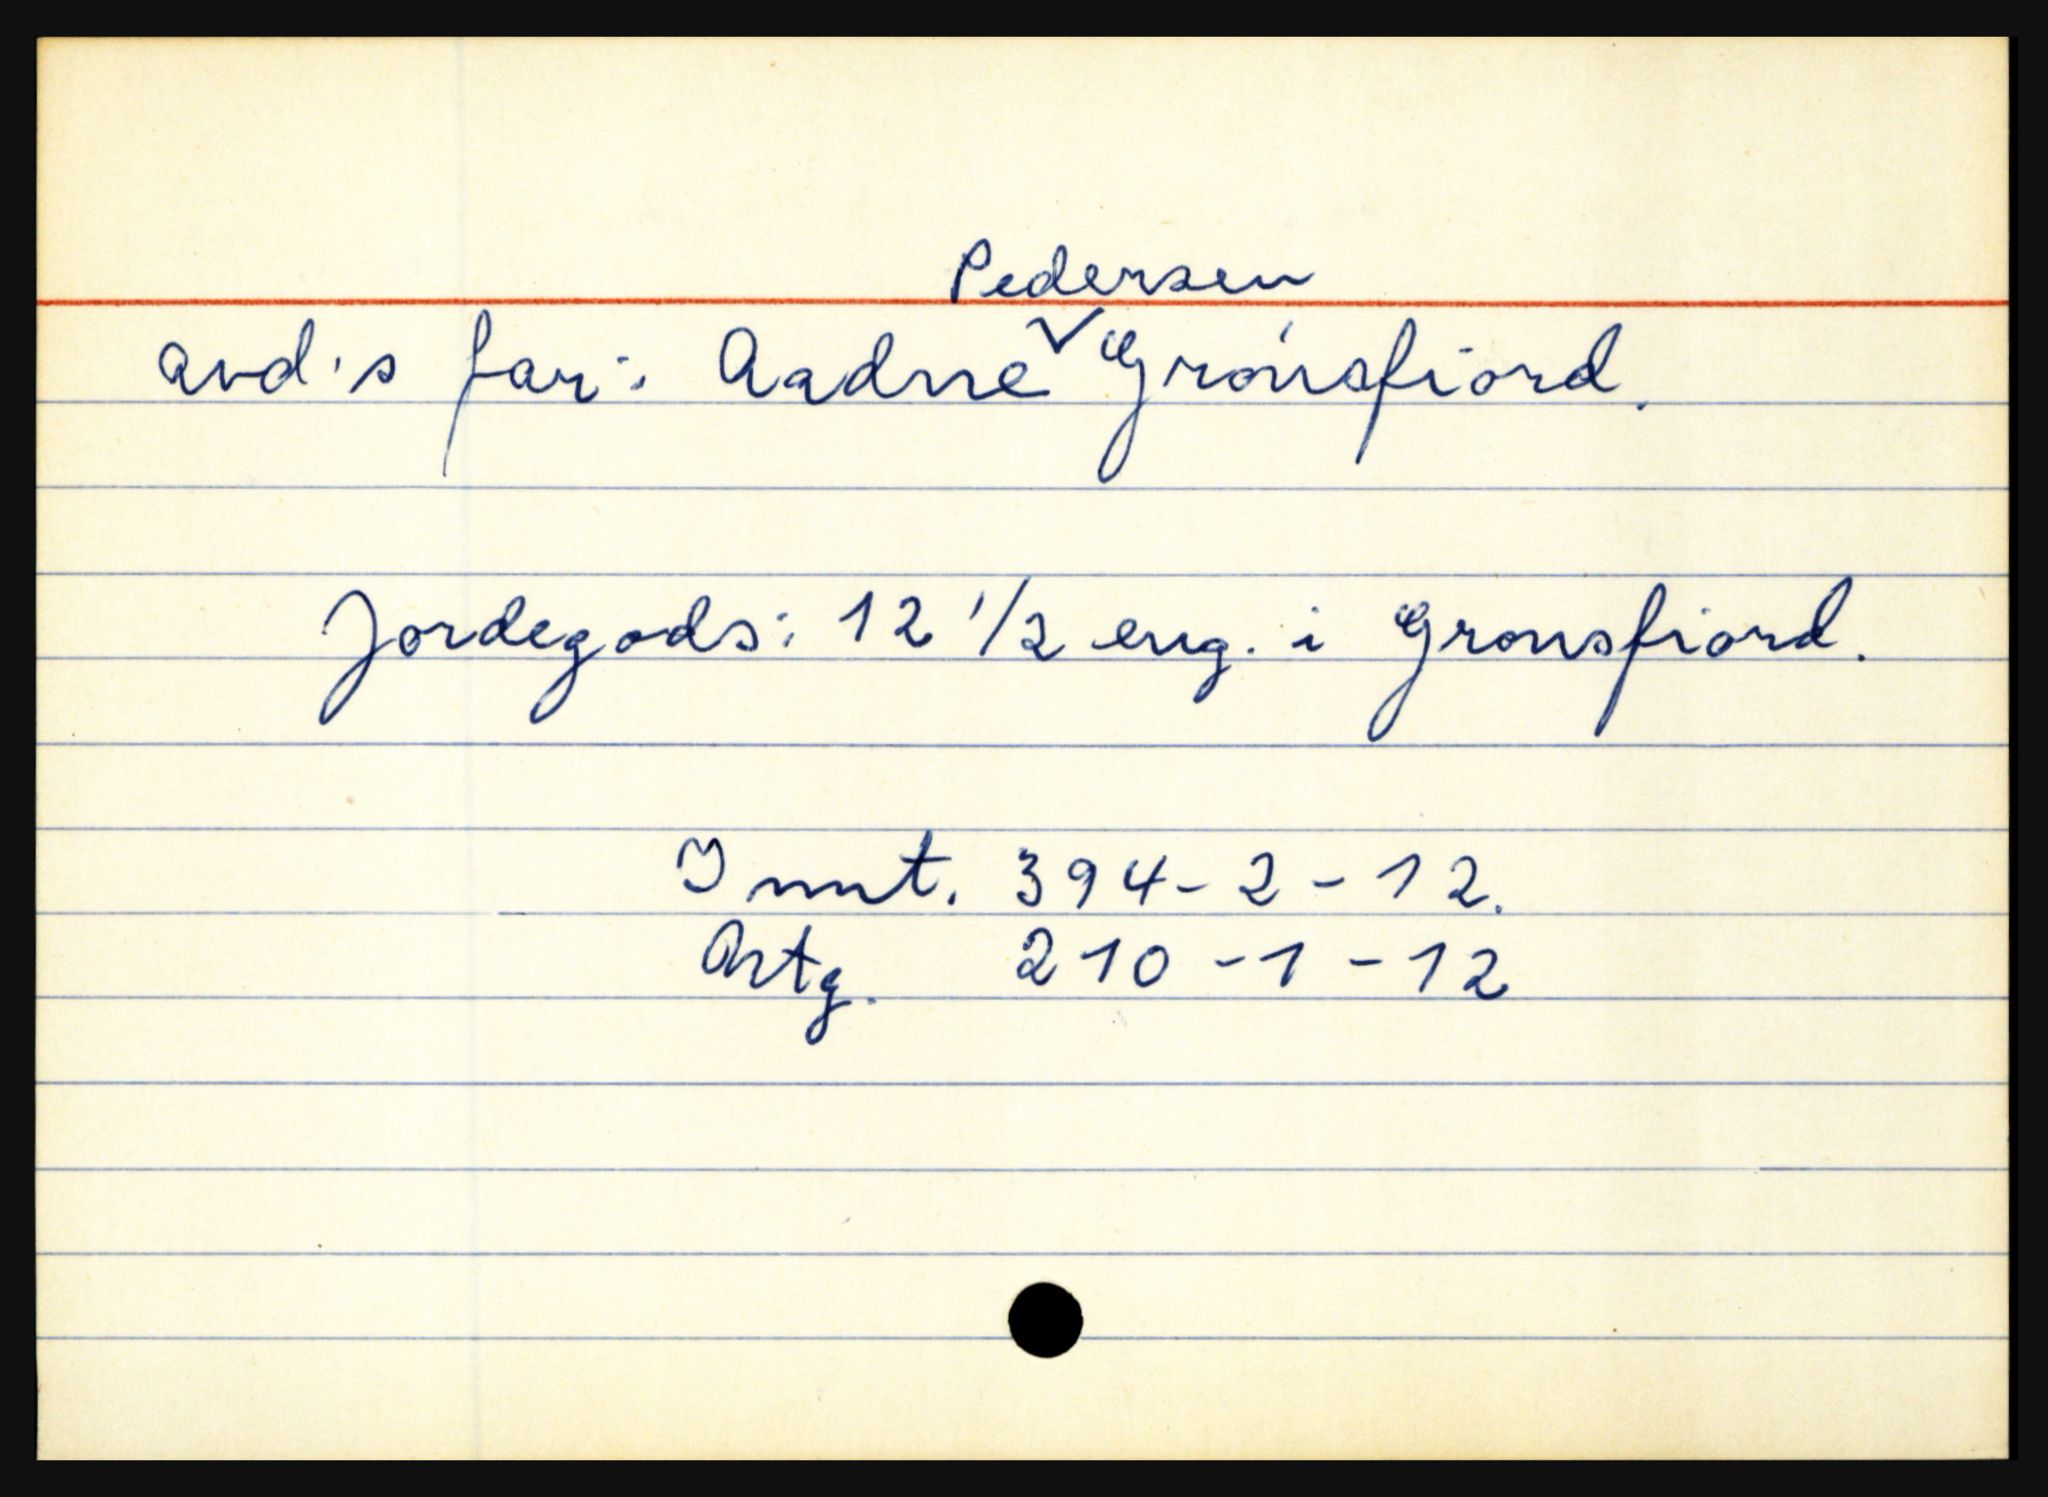 Pedersen
avd's far: Aadne ✓ Grónsfiord.
Jordegods: 12 1/2 eng. i Gronsfiord.
Innt. 394-2-12.
Artg. 210-1-12